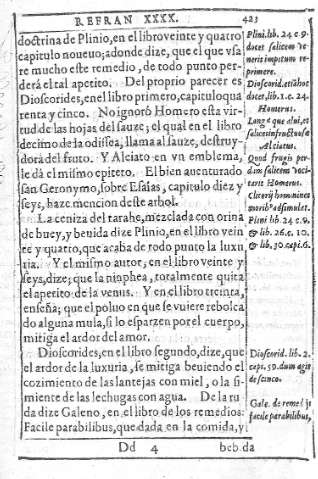 REFRAN XXXX. 423
doctrina de Plinio, en el libro veinte y quatro
capitulo noueuo; adonde dize, que el que vsa
re mucho este remedio, de todo punto per-
derá el tal apetito. Del proprio parecer es
Dioscorides, en el libro primero, capitulo qua
renta y cinco. No ignoró Homero esta vir-
tud de las hojas del sauze; el qual en el libro
decimo de la odissea, llama al sauze, destruy-
dora del fruto. Y Alciato en vn emblema,
le dà el mismo epiteto. El bien auenturado
san Geronymo, sobre Esaîas, capitulo diez y
seys, haze mencion deste arbol.
La ceniza del tarahe, mezclada con orina
de buey, y beuida dize Plinio, en el libro vein
te y quatro, que acaba de rodo punto la luxu
ria. Y el mismo autor, en el libro veinte y
seys, dize; que la ninphea, totalmente quita
el apetito de la venus. Y en el libro treinta,
enseña; que el poluo en que se vuiere rebolca
do alguna mula, si lo esparzen por el cuerpo,
mitiga el ardor del amor.
Dioscorides, en el libro segundo, dize, que
el ardor de la luxuria, se mitiga beuiendo el
cozimiento de las lantejas con miel, o la si-
miente de las lechugas con agua. De la ru
da dize Galeno, en el libro de los remedios:
Facile parabilibus, que dada en la comida, y
Dd 4 beb.da
Plini. lib. 24 c. 9.
docet salicem ve
neris impetum re
primere.
Dioscorid. etiā ho
docet, lib. 1. c. 24.
Homerus.
salices infructuosa
Alciatus.
Quod frugis per-
dam salicem voci-
terit Homerus.
Plini lib 24 c. 9.
& lib. 26. c. 10.
& lib. 30. capi. 6.
Dioscorid. lib. 2.
caps. 59. dum agit
de cinco.
Gale. de remed is
facile parabilibus,